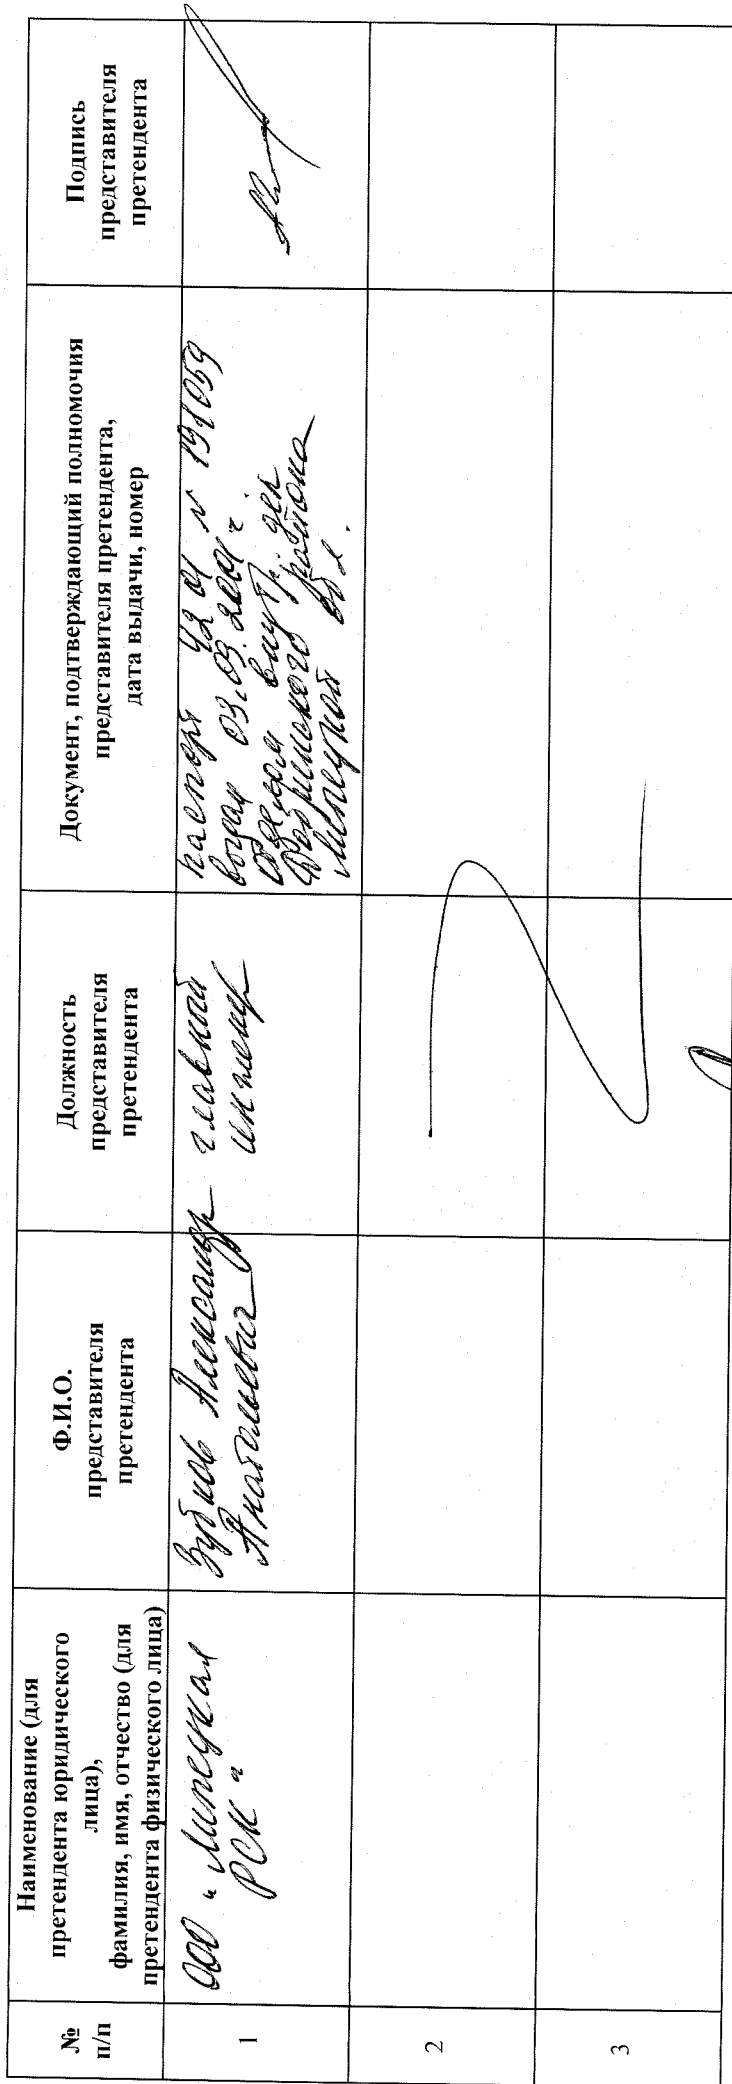 №
п/п
Наименование (для
претендента юридического
лица),
фамилия, имя, отчество (для
претендента физического лица)
Ф.И.О.
представителя
претендента
Должность
представителя
претендента
Документ, подтверждающий полномочия
представителя претендента,
дата выдачи, номер
Подпись
представителя
претендента
1
ООО "Липецкая
РСК"
Зубков Александр
Анатольевич
главный
инженер
паспорт 42 01 № 191059
выдан 03.03.2001 г.
отделом внутр. дел
Добринского района
Липецкой обл.
2
3